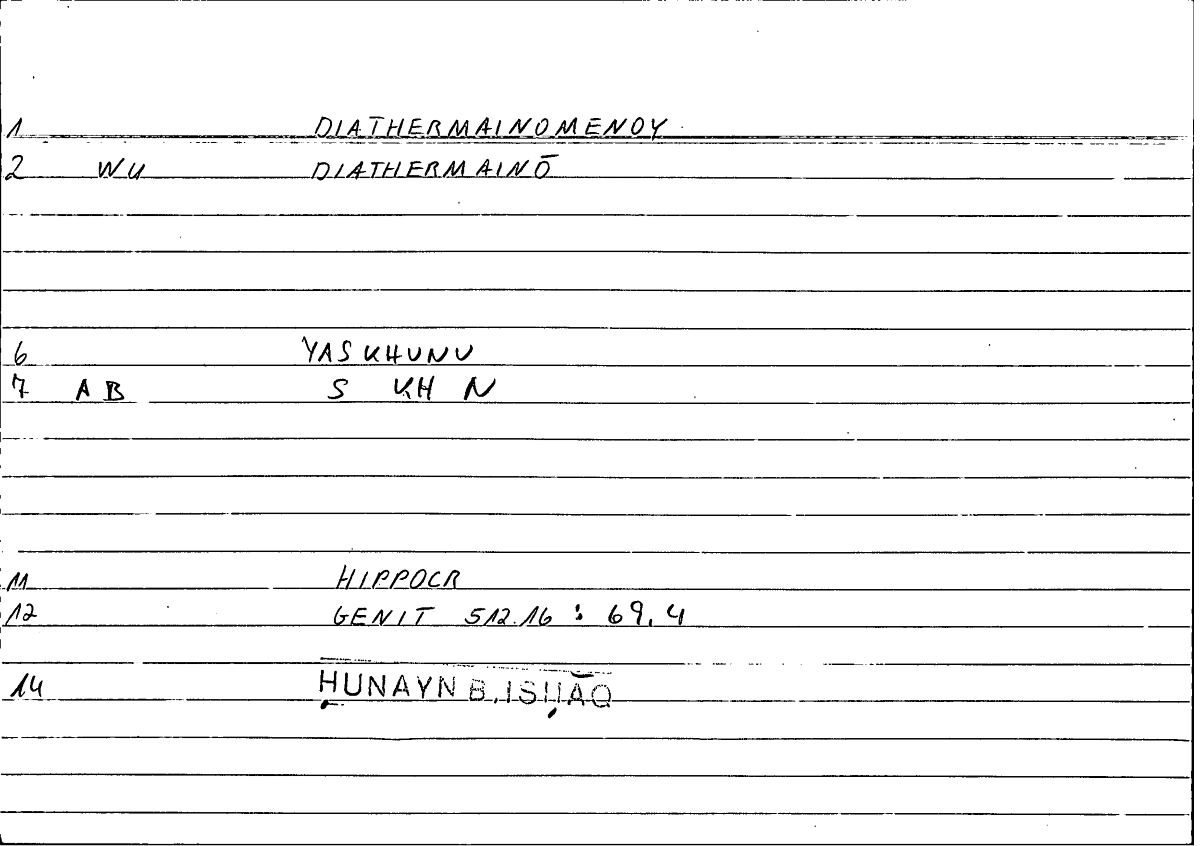 1 DIATHERMAINOMENOY
2 WU DIATHERMAINŌ
6 YASKHUNU
7 AB S KH N
11 HIPPOCR
12 GENIT 512.16 : 69.4
14 ḤUNAYN B. ISḤĀQ